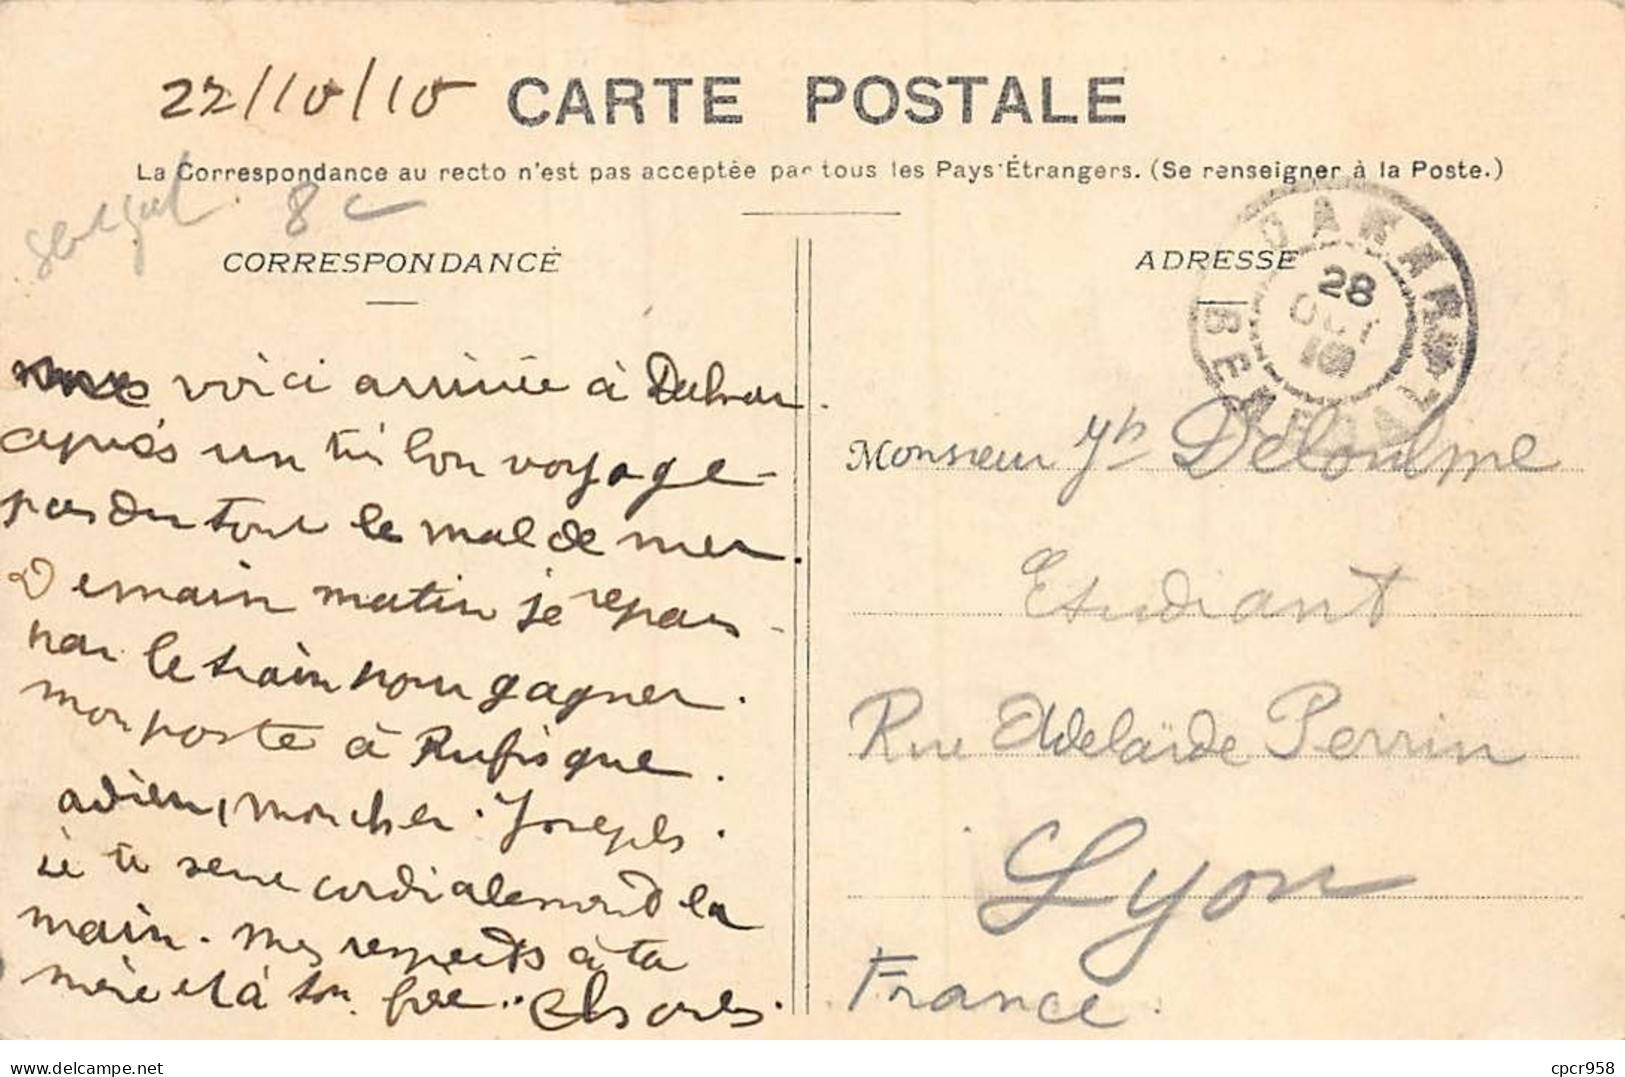 22/10/10 CARTE POSTALE
La Correspondance au recto n'est pas acceptée par tous les Pays Étrangers. (Se renseigner à la Poste.)
Senegal 8c
CORRESPONDANCE
voici arrivée à Dakar.
après un très bon voyage -
pas du tout le mal de mer.
Demain matin je repars -
par le train pour gagner.
mon poste à Rufisque.
adieu, mon cher Joseph.
je te serre cordialement la
main. mes respects à ta
mère et à ton
ADRESSE
DAKAR
28
OCT
10
SENEGAL
Monsieur Jh Deloulme
Etudiant
Rue Adelaïde Perrin
Lyon
France
website: www.delcampe.net
cpcr958